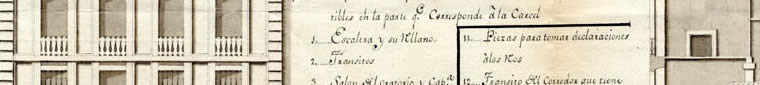 ribles en la parte q.e Corresponde â la Carcel
1. Escalera y su Mllano.
2. Transitos
3. Salon del Oratorio y Cap.a
11. Piezas para tomar declaraciones
â los Reos
12. Transito del Corredor que tiene